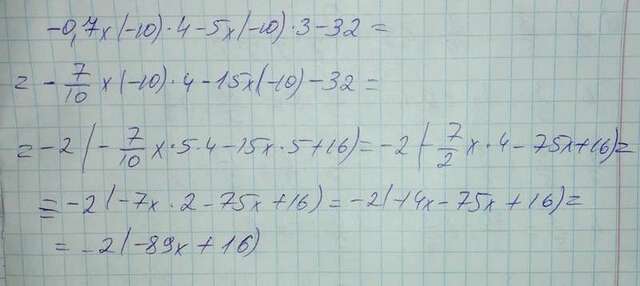 -0,7x(-10)·4-5x(-10)·3-32=
= -7/10 x(-10)·4-15x(-10)-32=
= -2(-7/10 x·5·4-15x·5+16)= -2(-7/2 x·4-75x+16)=
= -2(-7x·2-75x+16)= -2(-14x-75x+16)=
= -2(-89x+16)